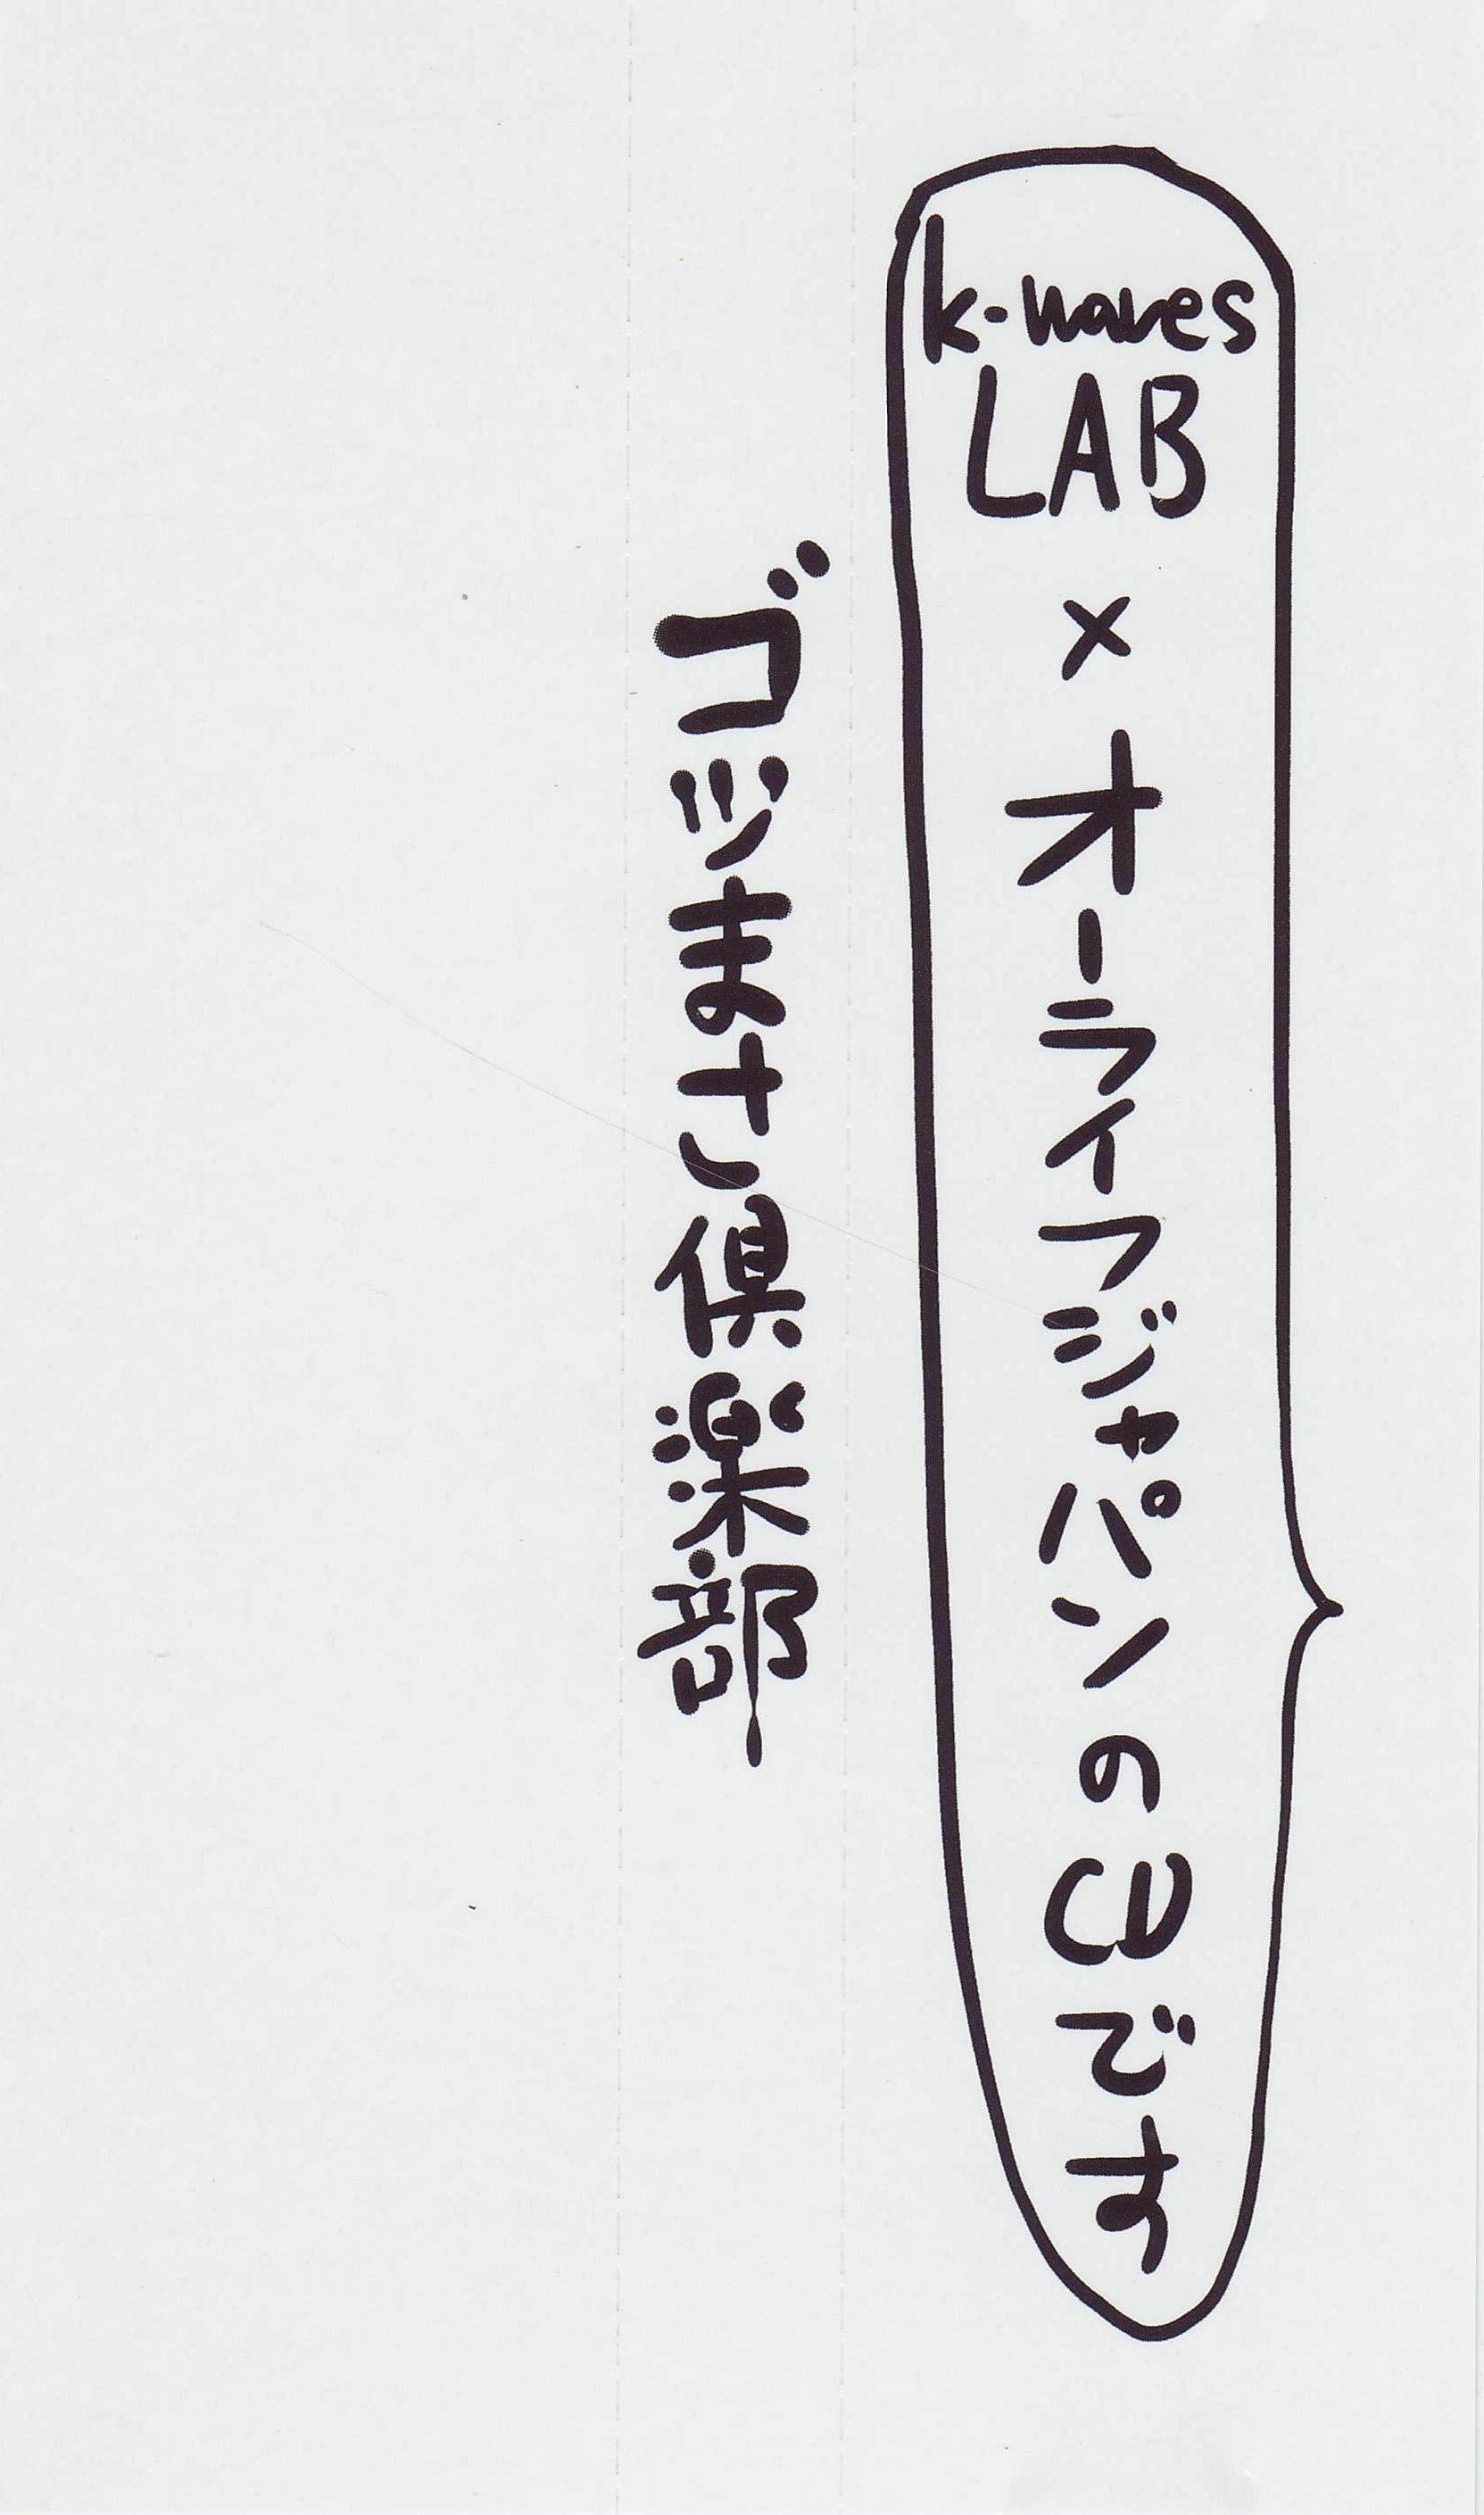 k-waves
LAB
×オーライフジャパンのCDです
ゴッまさ倶楽部